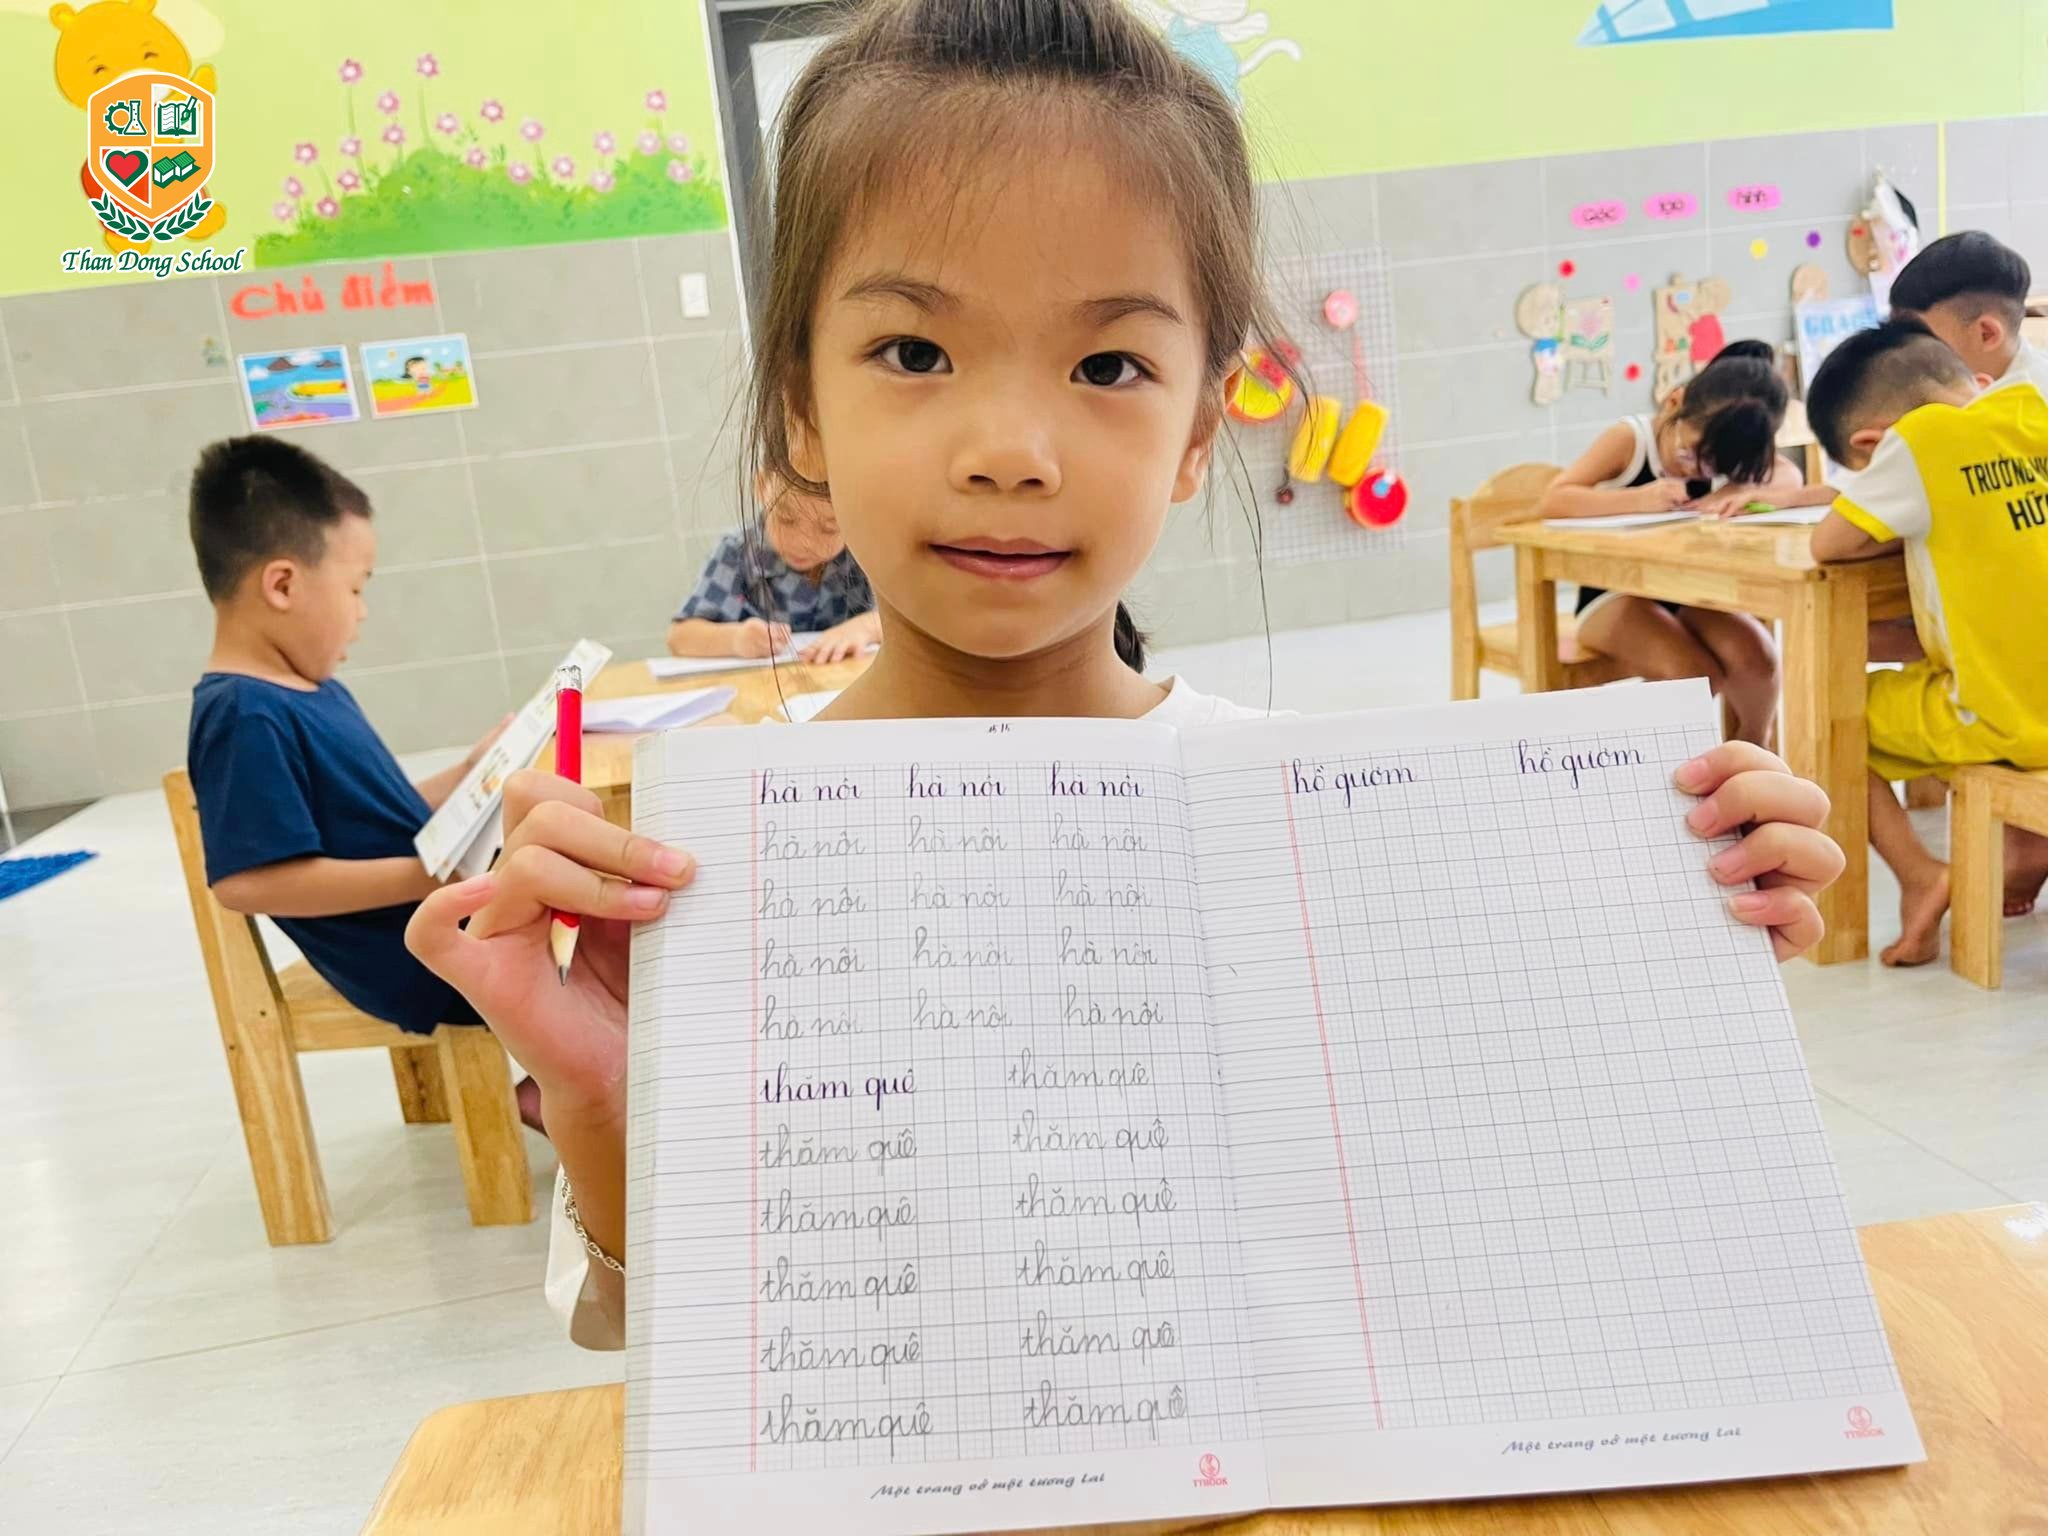 Than Dong School
Chủ điểm
Góc tạo hình
TRƯỜNG
15/5
hà nội hà nội hà nội
hà nội hà nội hà nội
hà nội hà nội hà nội
hà nội hà nội hà nội
hà nội hà nội hà nội
thăm quê thăm quê
thăm quê thăm quê
thăm quê thăm quê
thăm quê thăm quê
thăm quê thăm quê
thăm quê thăm quê
Một trang vở một tương lai
TTBOOK
hồ gươm hồ gươm
Một trang vở một tương lai
TTBOOK